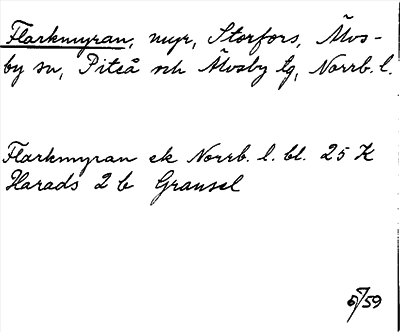 Flarkmyran, myr, Storfors, Älvs-
by sn, Piteå och Älvsby tg, Norrb. l.
Flarkmyran ek Norrb. l. bl. 25 K
Harads 2 b Gransel
/59